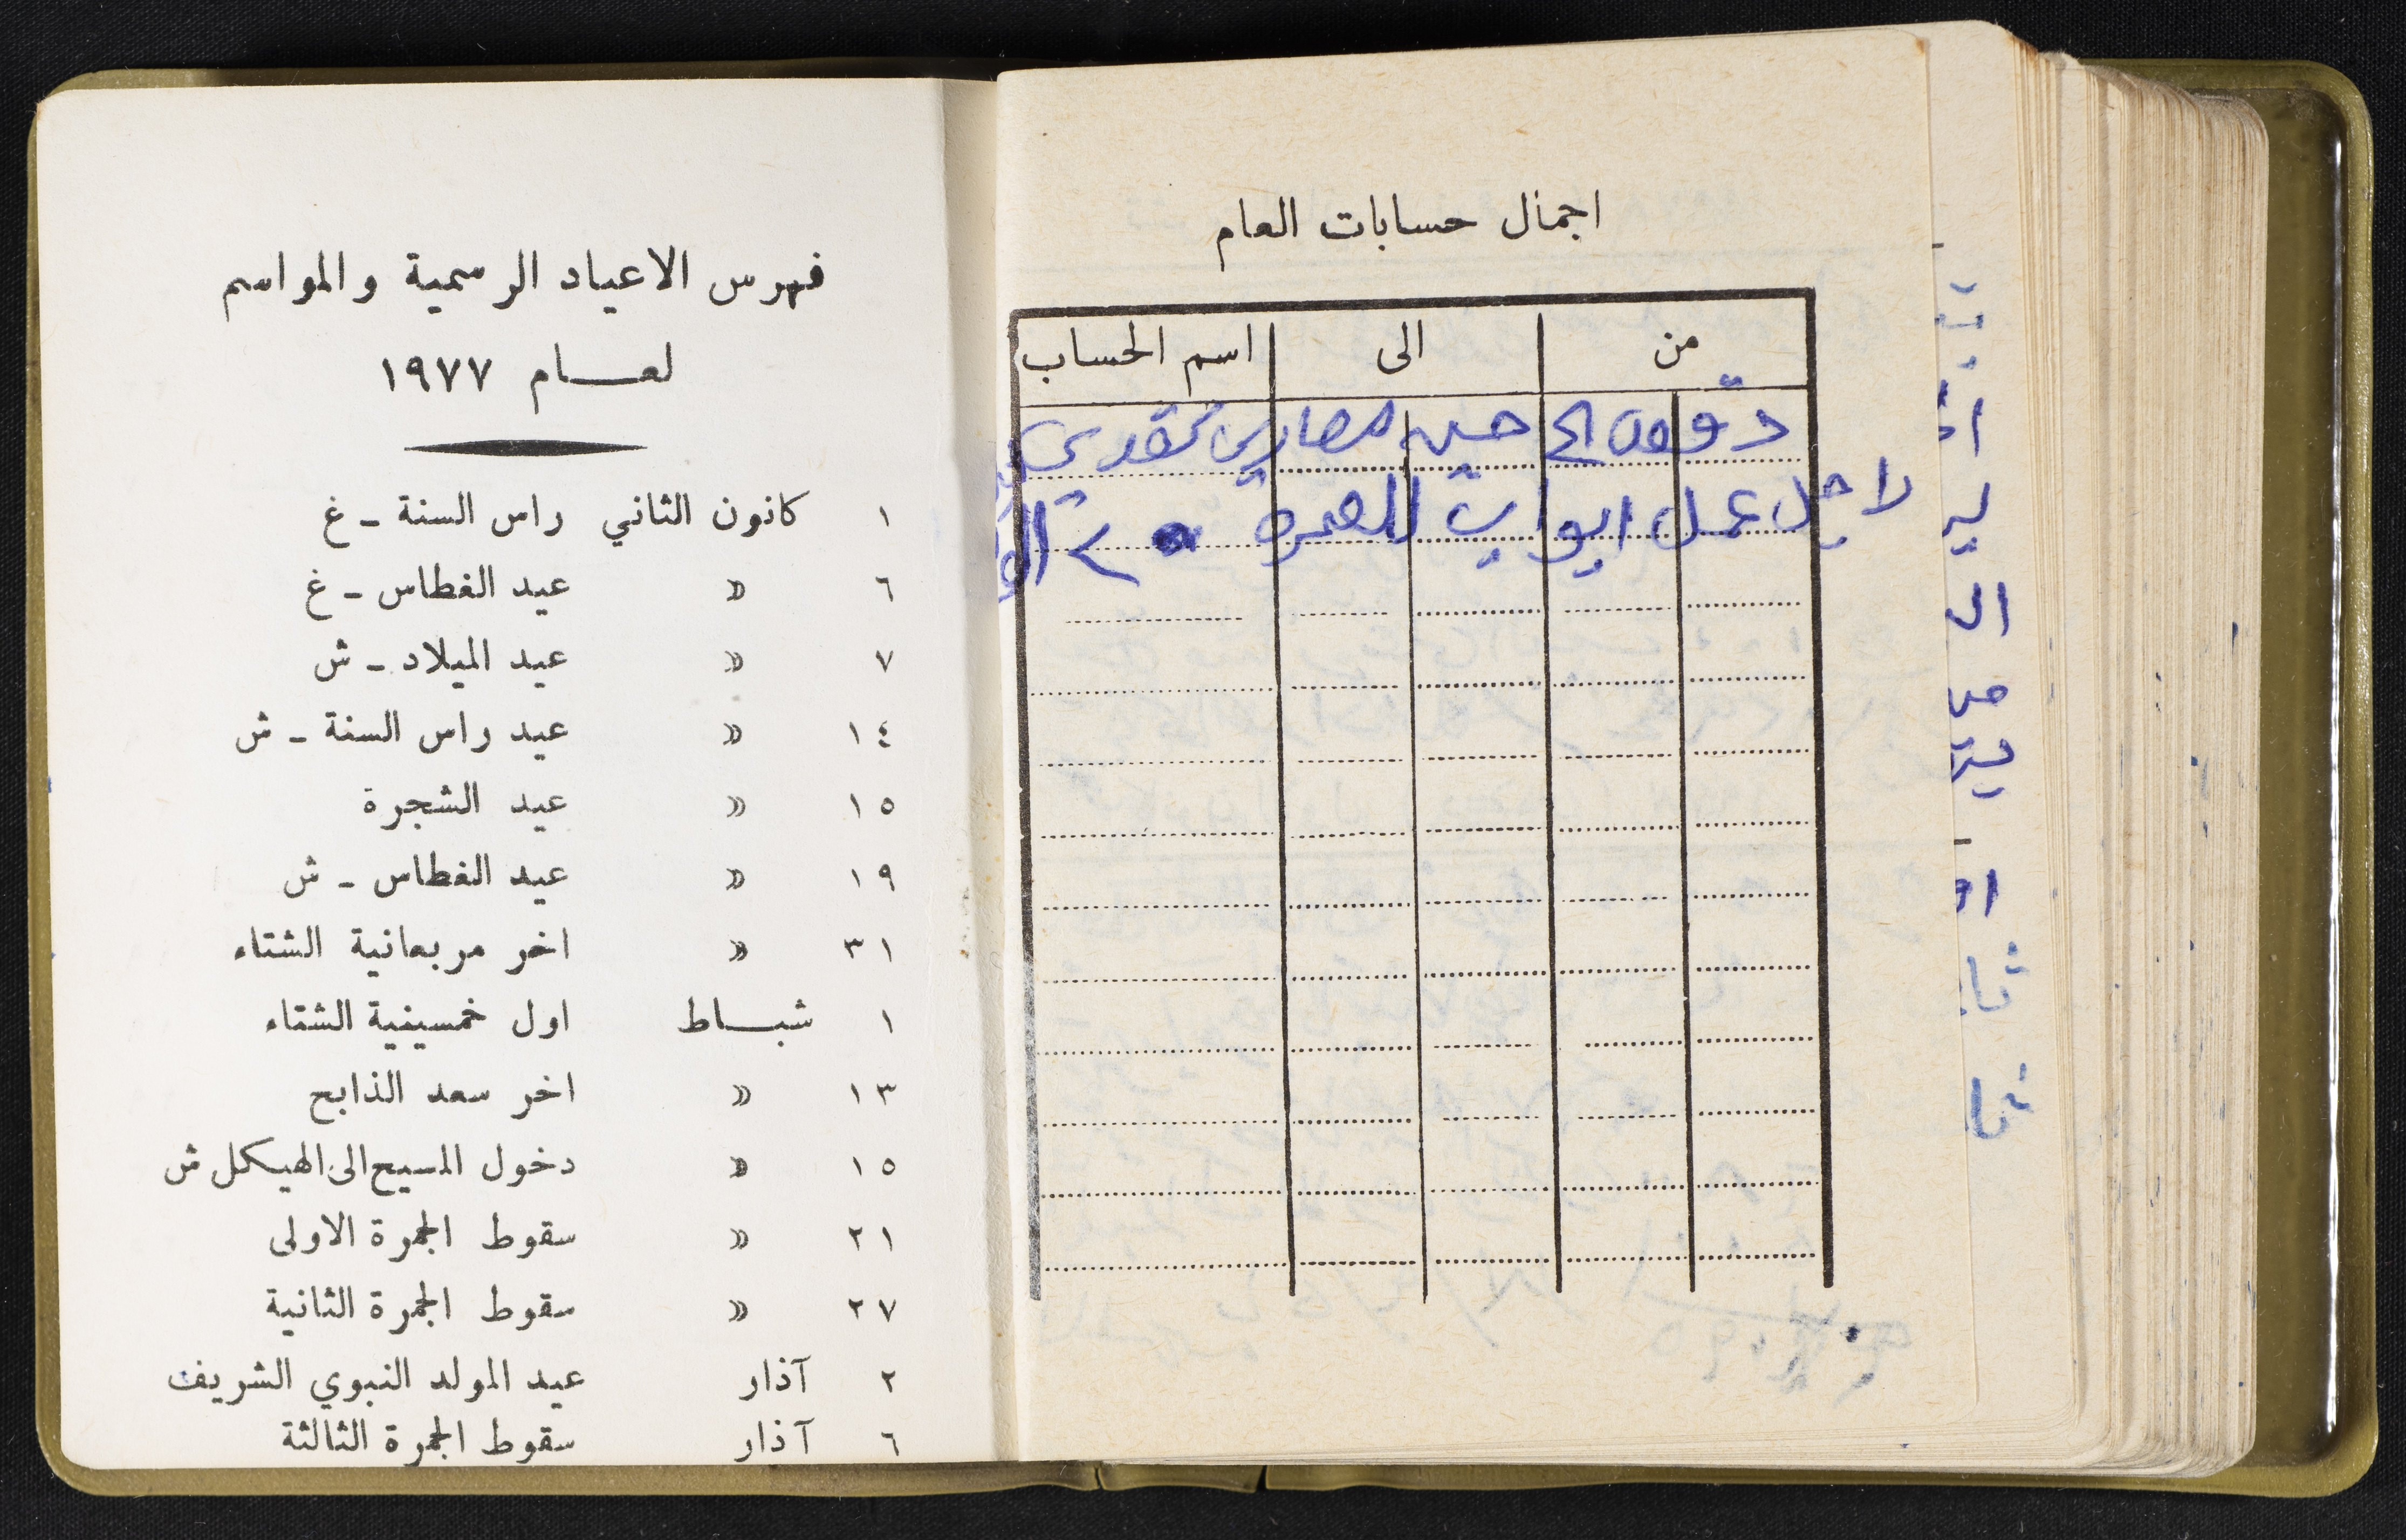 اجمال حسابات العام
من الى اسم الحساب
مصاري نقدي
لاجل عمل ابواب للعمره
فهرس الاعياد الرسمية والمواسم
لعـــام ١٩٧٧
١ كانون الثاني راس السنة ـ غ
٦ » عيد الغطاس ـ غ
٧ » عيد الميلاد ـ ش
١٤ » عيد راس السنة ـ ش
١٥ » عيد الشجرة
١٩ » عيد الغطاس ـ ش
٣١ » اخر مربعانية الشتاء
١ شبـــاط اول خمسينية الشتاء
١٣ » اخر سعد الذابح
١٥ » دخول المسيح الى الهيكل ش
٢١ » سقوط الجمرة الاولى
٢٧ » سقوط الجمرة الثانية
٢ آذار عيد المولد النبوي الشريف
٦ آذار سقوط الجمرة الثالثة